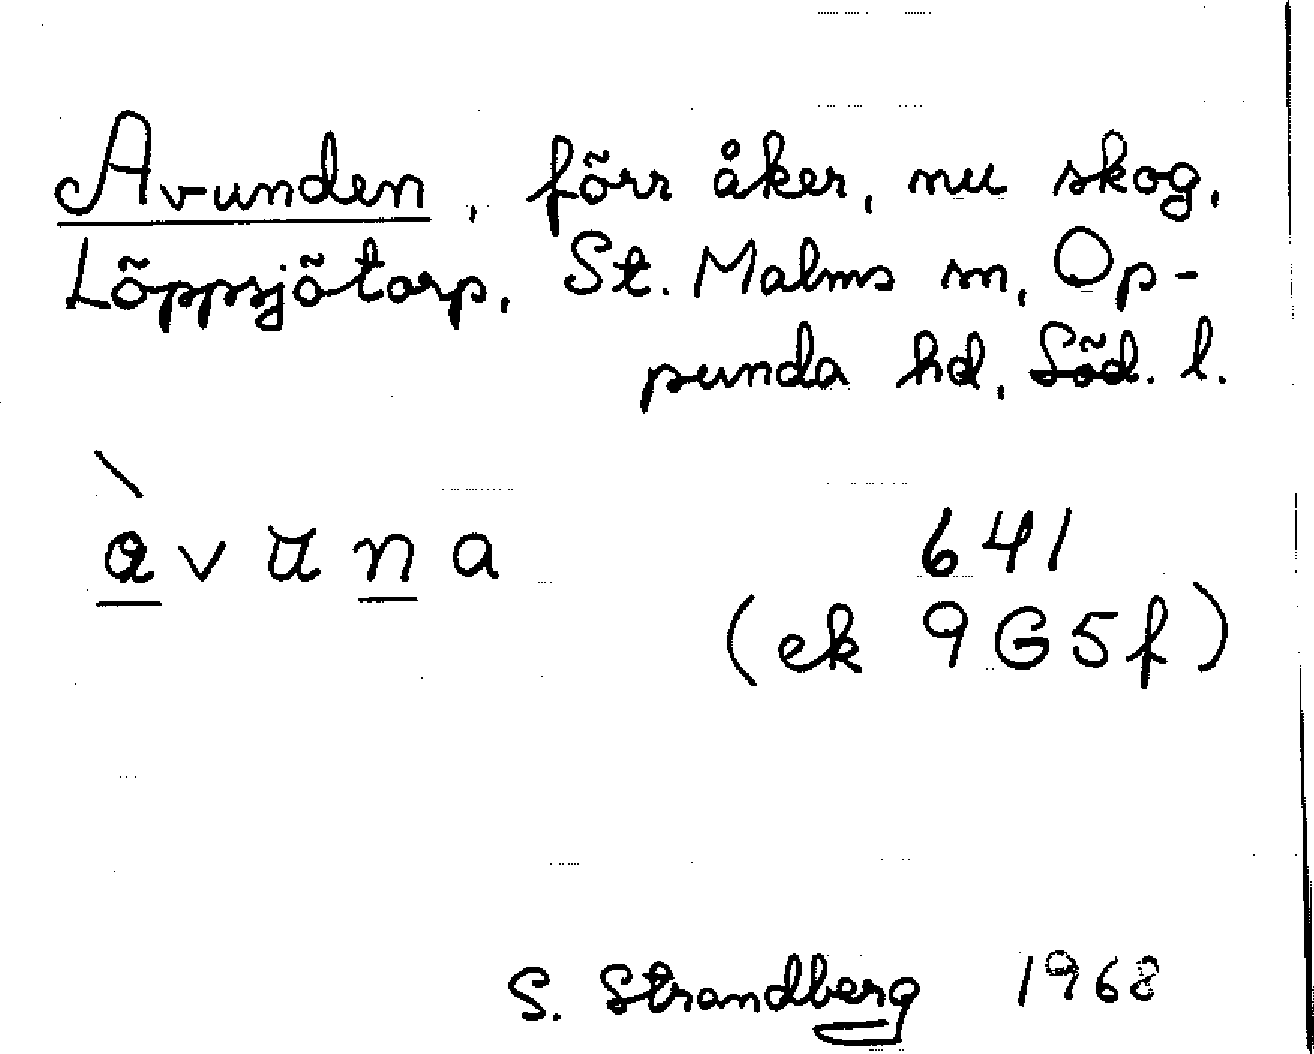 Avunden, förr åker, nu skog,
Löppsjötorp, St. Malms sn, Op-
punda hd, Söd. l.
àvuna
641
(ek 9G5f)
S. Strandberg 1968